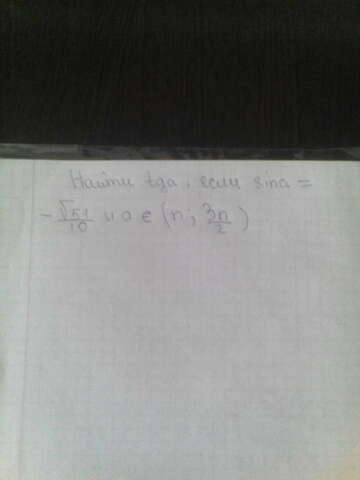 Найти tga, если sina =
- √51/10 и a ∈ (п; 3п/2)